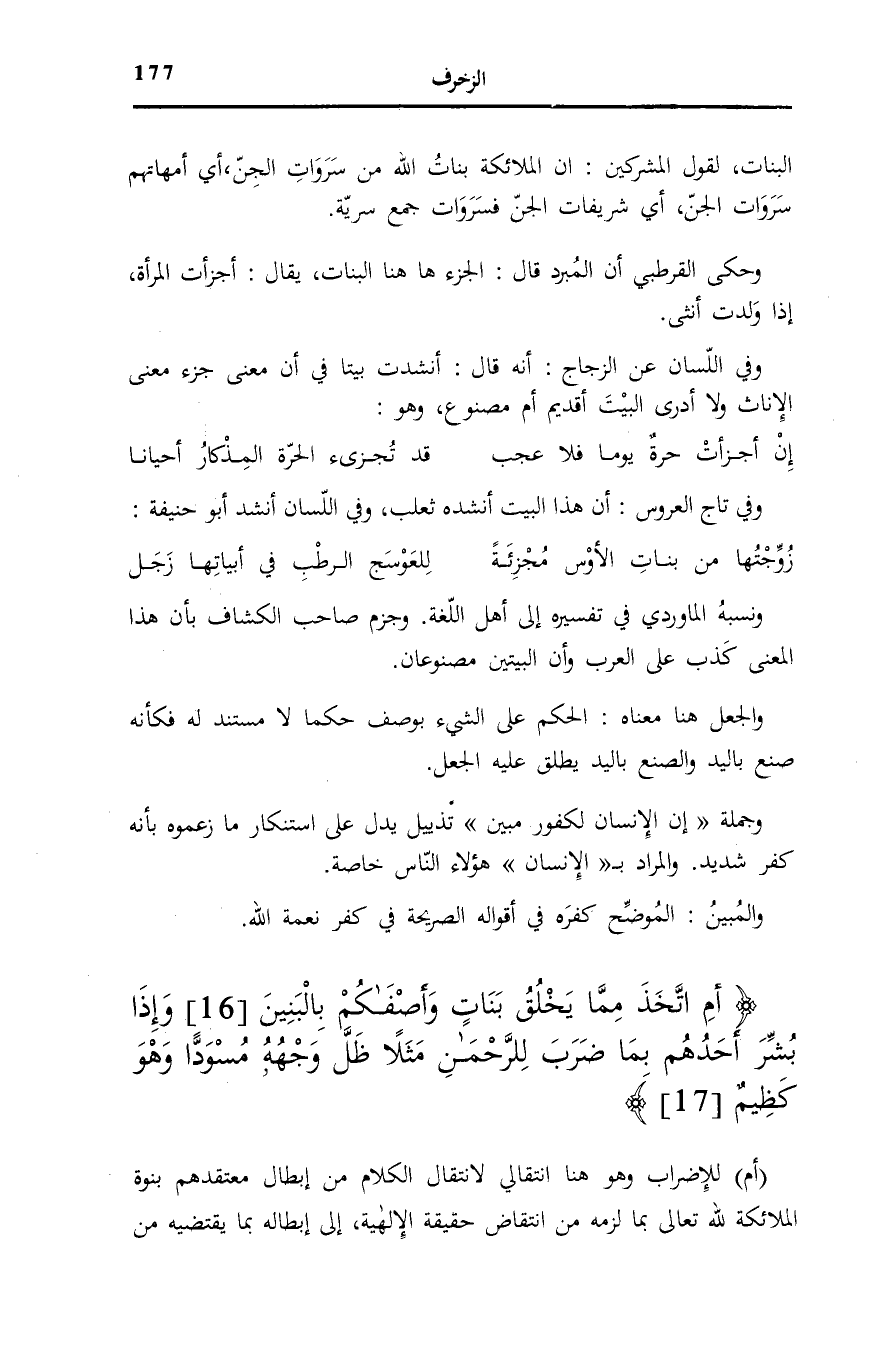 الزخرف
177
البنات، لقول المشركين : ان الملائكة بناتُ الله من سَرَوَاتِ الجِنّ،أي أمهاتهم
سَرَوَات الجنّ، أي شريفات الجنّ فسَرَوَات جمع سريّة.
وحكى القرطبي أن المُبرد قال : الجزء ها هنا البنات، يقال : أجزأت المرأة،
إذا وَلدت أنثى.
وفي اللّسان عن الزجاج : أنه قال : أنشدت بيتا في أن معنى جزء معنى
الإناث ولا أدرى البيْتَ أقديم أم مصنوع، وهو :
إِنْ أجـزأتْ حرةٌ يومـا فلا عجب قد تُجـزىء الحرّة المِـذْكارُ أحيانـا
وفي تاج العروس : أن هذا البيت أنشده ثعلب، وفي اللّسان أنشد أبو حنيفة :
زُوِّجْتُها من بنـاتِ الأوْس مُجْزِئَـةً لِلعَوْسَج الـرطْبِ في أبياتِهـا زَجَـل
ونسبهُ الماوردي في تفسيره إلى أهل اللّغة. وجزم صاحب الكشاف بأن هذا
المعنى كَذب على العرب وأن البيتين مصنوعان.
والجعل هنا معناه : الحكم على الشيء بوصف حكما لا مستند له فكأنه
صنع باليد والصنع باليد يطلق عليه الجعل.
وجملة « إن الإنسان لكفور مبين » تذييل يدل على استنكار ما زعموه بأنه
كفر شديد. والمراد بـ« الإنسان » هؤلاء النّاس خاصة.
والمُبينُ : المُوضِّح كفرَه في أقواله الصريحة في كفر نعمة الله.
﴿ أَمِ اتَّخَذَ مِمَّا يَخْلُقُ بَنَاتٍ وَأَصْفَـٰكُمْ بِالْبَنِينَ [16] وَإِذَا
بُشِّرَ أَحَدُهُم بِمَا ضَرَبَ لِلرَّحْمَـٰنِ مَثَلًا ظَلَّ وَجْهُهُ مُسْوَدًّا وَهْوَ
كَظِيمٌ [17] ﴾
(أم) للإضراب وهو هنا انتقالي لانتقال الكلام من إبطال معتقدهم بنوة
الملائكة لله تعالى بما لزمه من انتقاض حقيقة الإلهٰية، إلى إبطاله بما يقتضيه من